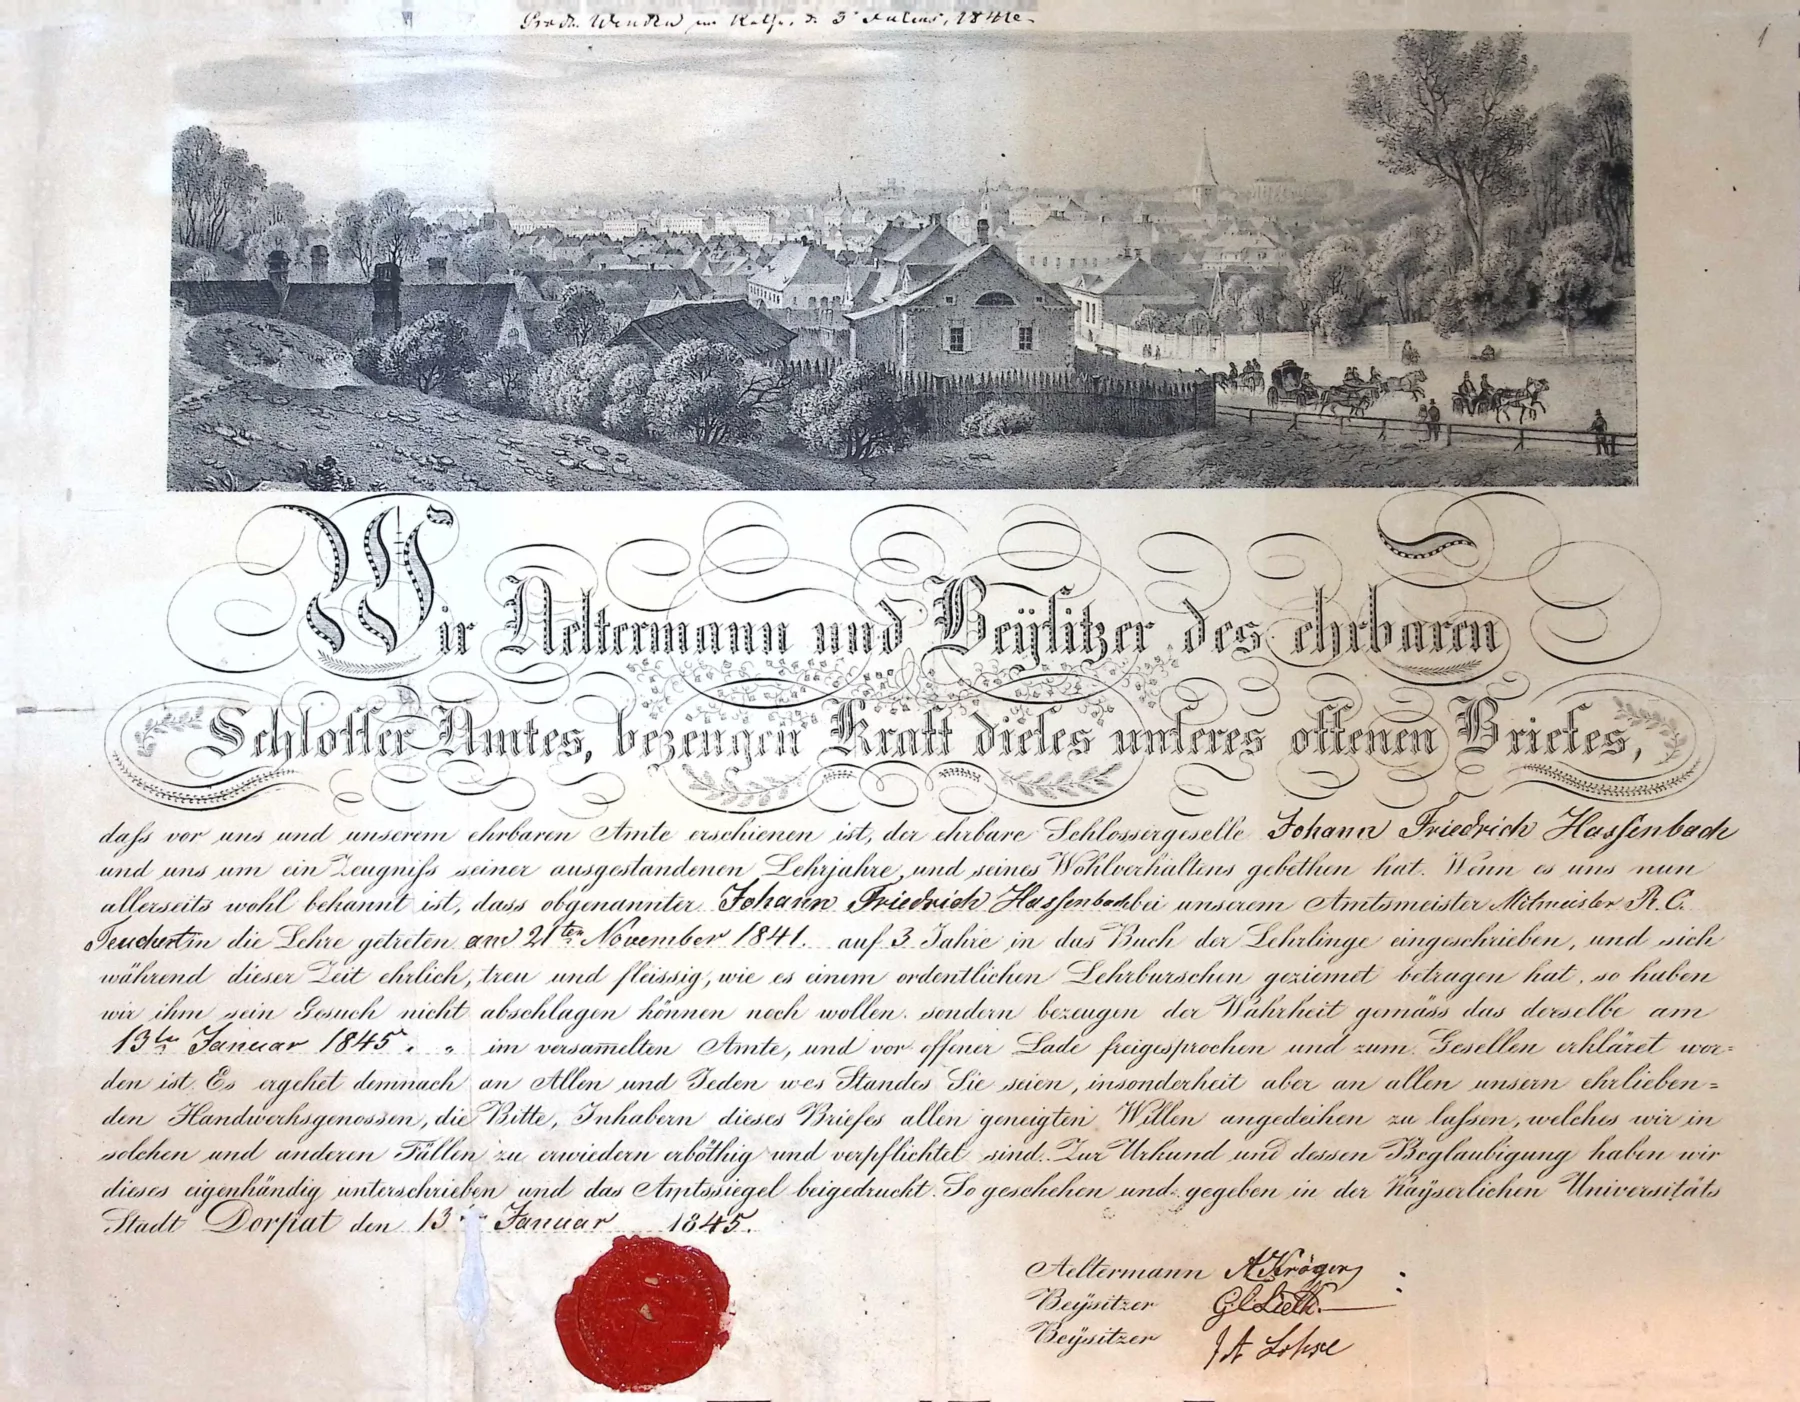 1
Wir Aeltermann und Beÿsitzer des ehrbaren
Schlosser Amtes, bezeugen Kraft dieses unseres offenen Briefes,
daſs vor uns und unserem ehrbaren Amte erschienen ist, der ehrbare Schlossergeselle Johann Friedrich Hassenbach
und uns um ein Zeugniſs seiner ausgestandenen Lehrjahre, und seines Wohlverhaltens gebethen hat. Wenn es uns nun
allerseits wohl bekannt ist, dass obgenannter Johann Friedrich Hassenbach bei unserem Amtsmeister Mitmeister R. C.
Teuchert in die Lehre getreten am 21ten November 1841. auf 3 Jahre in das Buch der Lehrlinge eingeschrieben, und sich
während dieser Zeit ehrlich, treu und fleissig, wie es einem ordentlichen Lehrburschen geziemet betragen hat, so haben
wir ihm sein Gesuch nicht abschlagen können noch wollen. sondern bezeugen der Wahrheit gemäss das derselbe am
13ten Januar 1845. im versam̅elten Amte, und vor offener Lade freigesprochen und zum Gesellen erkläret wor=
den ist. Es ergehet demnach an Allen und Jeden wes Standes Sie seien, insonderheit aber an allen unsern ehrlieben=
den Handwerksgenossen, die Bitte, Inhabern dieses Briefes allen geneigten Willen angedeihen zu laſsen, welches wir in
solchen und anderen Fällen zu erwiedern erböthig und verpflichtet sind. Zur Urkund und dessen Beglaubigung haben wir
dieses eigenhändig unterschrieben und das Amtssiegel beigedruckt. So geschehen und gegeben in der Kaÿserlichen Universitäts
Stadt Dorpat den 13 Januar 1845.
Aeltermann A Kröger
Beÿsitzer
Beÿsitzer J A Lohse